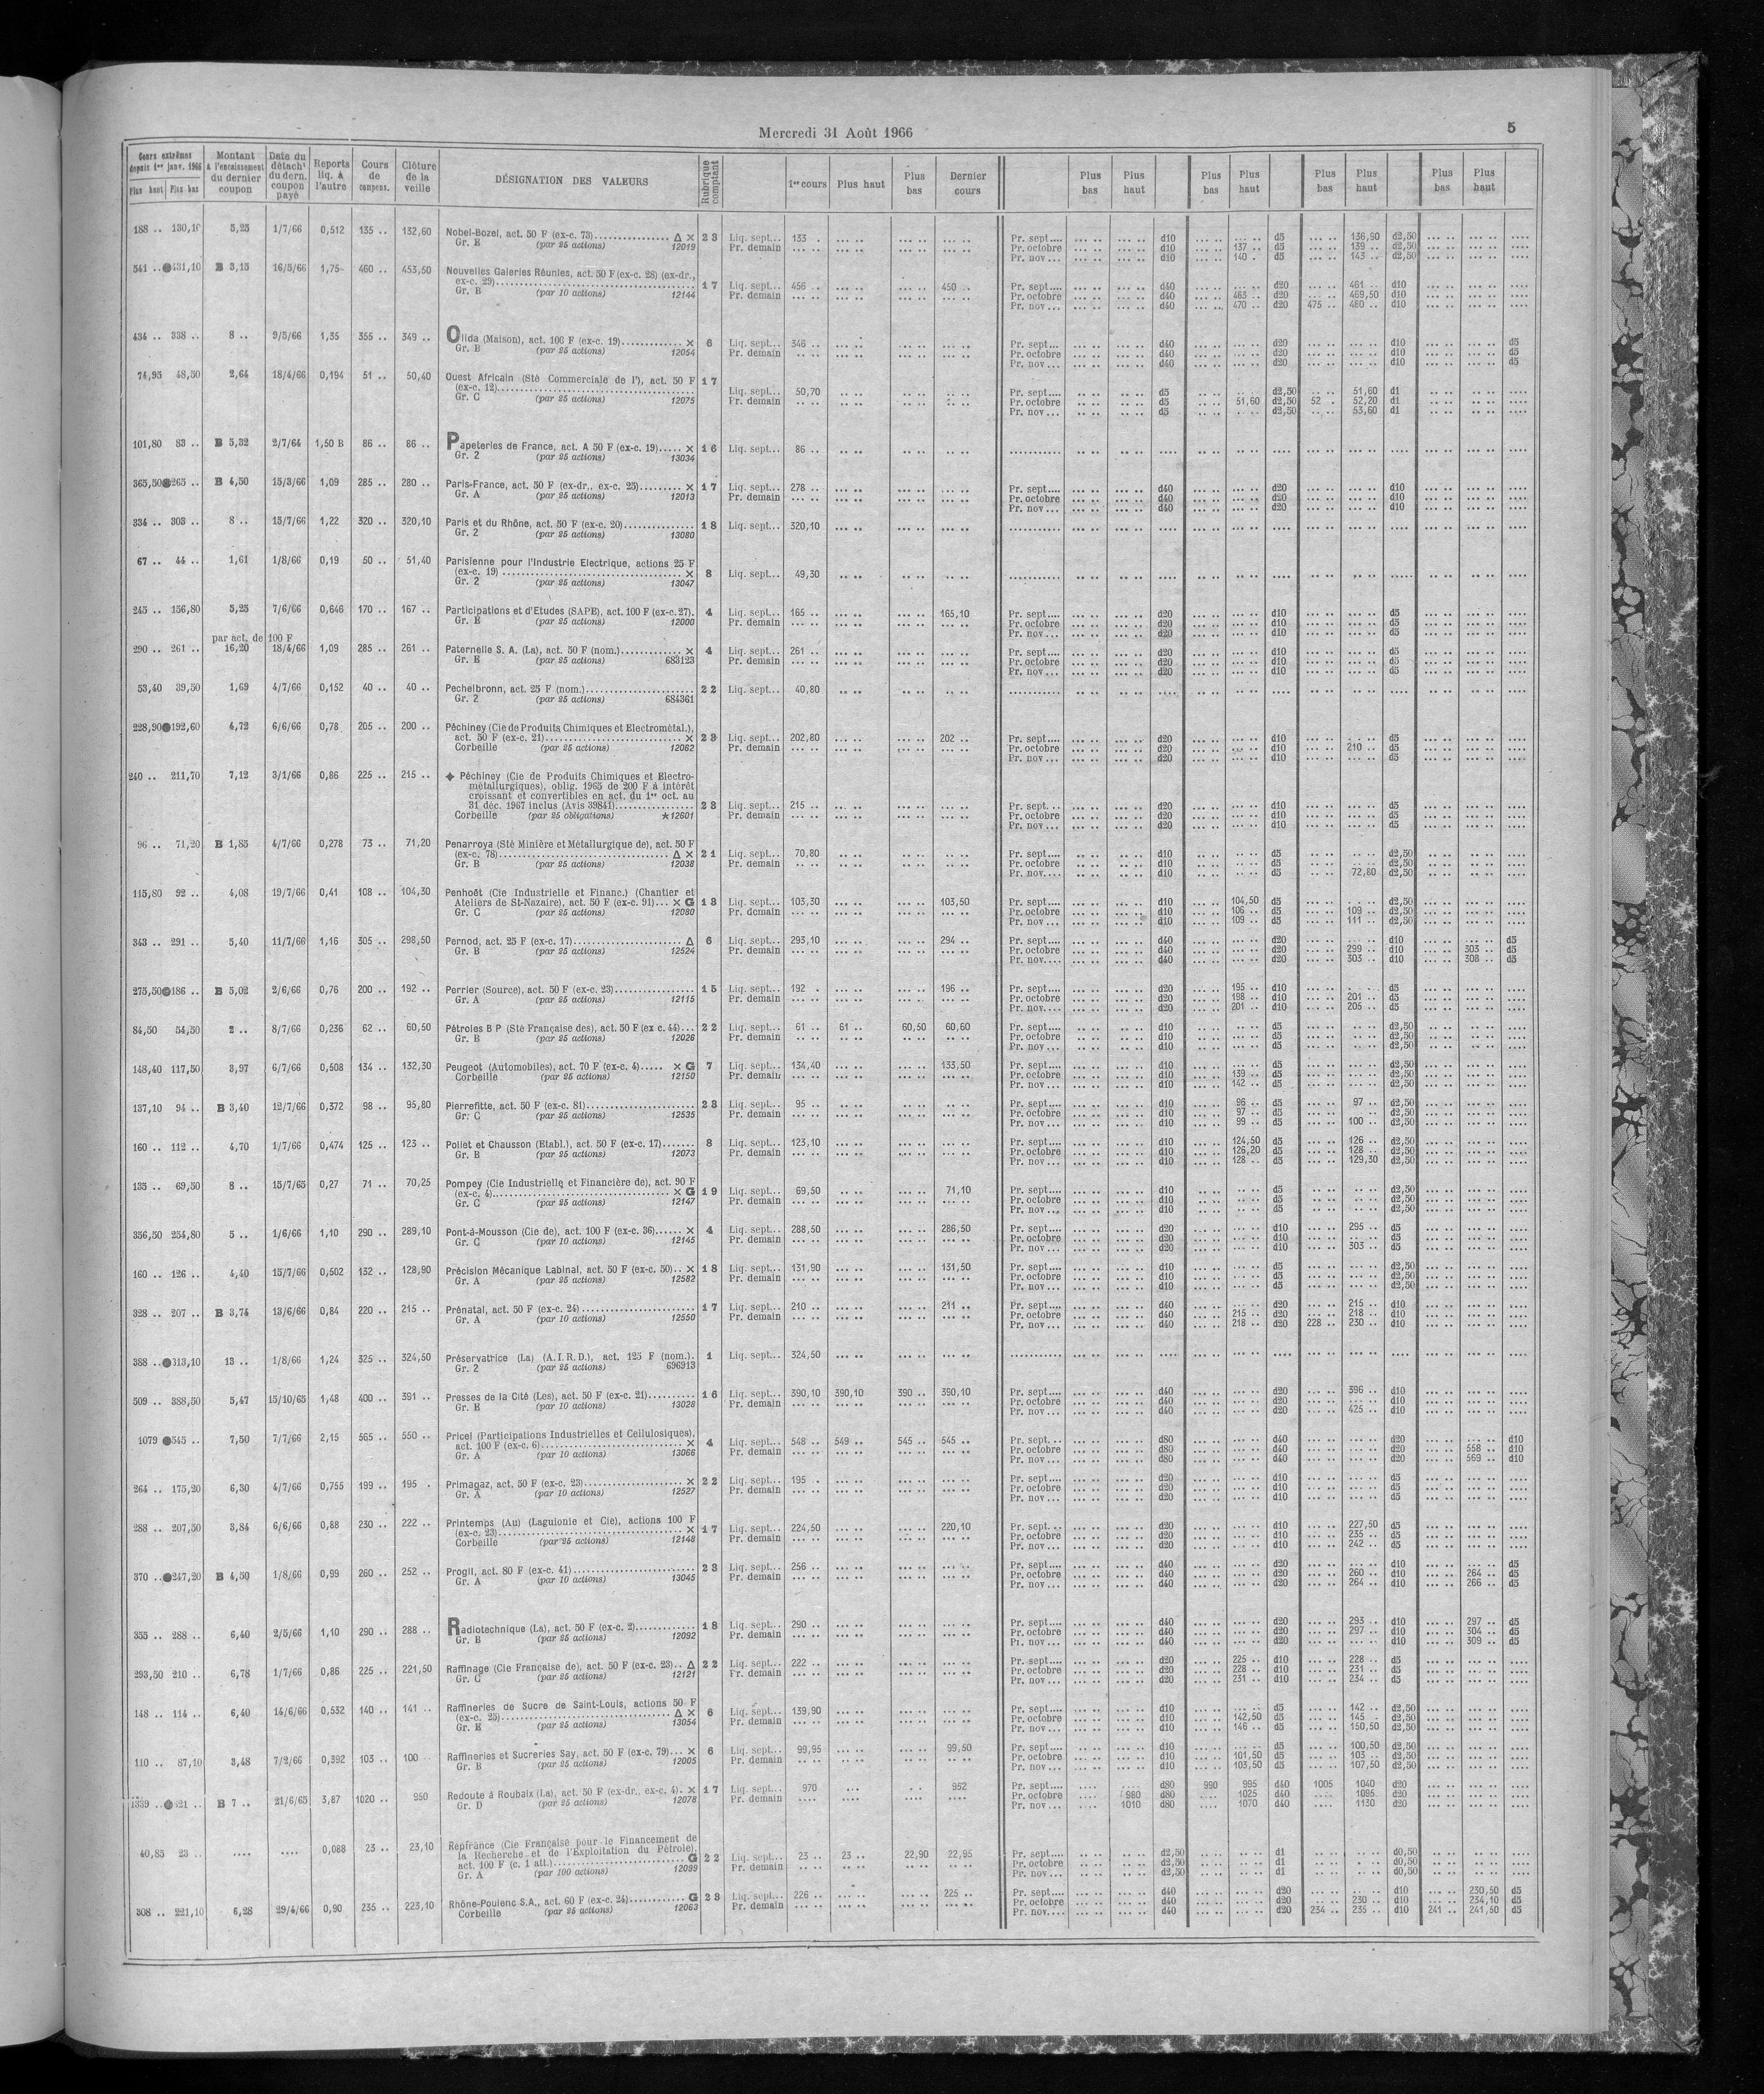 Mercredi 31 Août 1966
5
Cours extrêmes depuis 1er janv. 1966 Plus haut Plus bas | Montant à l'encaissement du dernier coupon | Date du détacht du dern. coupon payé | Reports liq. à l'autre | Cours de compens. | Clôture de la veille | DÉSIGNATION DES VALEURS | Rubrique comptant | 1er cours | Plus haut | Plus bas | Dernier cours | Plus bas | Plus haut | Plus bas | Plus haut | Plus bas | Plus haut | Plus bas | Plus haut
188 .. 130,10 5,25 1/7/66 0,512 135 .. 132,60 Nobel-Bozel, act. 50 F (ex-c. 73) Δ × 23 Liq. sept... 133 . Pr. sept.... d10 d5 136,90 d2,50
Gr. E (par 25 actions) 12019 Pr. demain Pr. octobre d10 137 .. d5 139 .. d2,50
Pr. nov... d10 140 . d5 143 .. d2,50
541 .. ●431,10 B 3,15 16/5/66 1,75 460 .. 453,50 Nouvelles Galeries Réunies, act. 50 F (ex-c. 28) (ex-dr.,
ex-c. 29) 17 Liq. sept... 456 .. 450 .. Pr. sept.... d40 d20 461 .. d10
Gr. B (par 10 actions) 12144 Pr. demain Pr. octobre d40 463 .. d20 469,50 d10
Pr. nov... d40 470 .. d20 475 .. 480 .. d10
434 .. 338 .. 8 .. 9/5/66 1,35 355 .. 349 .. Olida (Maison), act. 100 F (ex-c. 19) × 6 Liq. sept... 346 .. Pr. sept.... d40 d20 d10 d5
Gr. B (par 25 actions) 12054 Pr. demain Pr. octobre d40 d20 d10 d5
Pr. nov... d40 d20 d10 d5
74,95 48,50 2,64 18/4/66 0,194 51 .. 50,40 Ouest Africain (Sté Commerciale de l'), act. 50 F 17
(ex-c. 12) Liq. sept... 50,70 Pr. sept.... d5 d2,50 51,60 d1
Gr. C (par 25 actions) 12075 Pr. demain Pr. octobre d5 51,60 d2,50 52 .. 52,20 d1
Pr. nov... d5 d2,50 53,60 d1
101,80 83 .. B 5,32 2/7/64 1,50 B 86 .. 86 .. Papeteries de France, act. A 50 F (ex-c. 19)..... × 16 Liq. sept... 86 ..
Gr. 2 (par 25 actions) 13034
365,50 ●265 .. B 4,50 15/3/66 1,09 285 .. 280 .. Paris-France, act. 50 F (ex-dr., ex-c. 25) × 17 Liq. sept... 278 .. Pr. sept.... d40 d20 d10
Gr. A (par 25 actions) 12013 Pr. demain Pr. octobre d40 d20 d10
Pr. nov... d40 d20 d10
334 .. 303 .. 8 .. 15/7/66 1,22 320 .. 320,10 Paris et du Rhône, act. 50 F (ex-c. 20) 18 Liq. sept... 320,10
Gr. 2 (par 25 actions) 13080
67 .. 44 .. 1,61 1/8/66 0,19 50 .. 51,40 Parisienne pour l'Industrie Electrique, actions 25 F
(ex-c. 19) × 8 Liq. sept... 49,30
Gr. 2 (par 25 actions) 13047
245 .. 156,80 5,25 7/6/66 0,646 170 .. 167 .. Participations et d'Etudes (SAPE), act. 100 F (ex-c. 27). 4 Liq. sept... 165 .. 165,10 Pr. sept.... d20 d10 d5
Gr. E (par 25 actions) 12000 Pr. demain Pr. octobre d20 d10 d5
Pr. nov... d20 d10 d5
par act. de 100 F
290 .. 261 .. 16,20 18/4/66 1,09 285 .. 261 .. Paternelle S. A. (La), act. 50 F (nom.) × 4 Liq. sept... 261 .. Pr. sept.... d20 d10 d5
Gr. E (par 25 actions) 683123 Pr. demain Pr. octobre d20 d10 d5
Pr. nov... d20 d10 d5
53,40 39,50 1,69 4/7/66 0,152 40 .. 40 .. Pechelbronn, act. 25 F (nom.) 22 Liq. sept... 40,80
Gr. 2 (par 25 actions) 684361
228,90 ●192,60 4,72 6/6/66 0,78 205 .. 200 .. Péchiney (Cie de Produits Chimiques et Electrométal.),
act. 50 F (ex-c. 21) × 23 Liq. sept... 202,80 202 .. Pr. sept.... d20 d10 d5
Corbeille (par 25 actions) 12062 Pr. demain Pr. octobre d20 d10 210 .. d5
Pr. nov... d20 d10 d5
240 .. 211,70 7,12 3/1/66 0,86 225 .. 215 .. ◆ Péchiney (Cie de Produits Chimiques et Electro-
métallurgiques), oblig. 1965 de 200 F à intérêt
croissant et convertibles en act. du 1er oct. au
31 déc. 1967 inclus (Avis 39841) 23 Liq. sept... 215 .. Pr. sept... d20 d10 d5
Corbeille (par 25 obligations) ★12601 Pr. demain Pr. octobre d20 d10 d5
Pr. nov... d20 d10 d5
96 .. 71,20 B 1,85 4/7/66 0,278 73 .. 71,20 Penarroya (Sté Minière et Métallurgique de), act. 50 F
(ex-c. 78) Δ × 21 Liq. sept... 70,80 Pr. sept.... d10 d5 d2,50
Gr. B (par 25 actions) 12038 Pr. demain Pr. octobre d10 d5 d2,50
Pr. nov.... d10 d5 72,80 d2,50
115,80 92 .. 4,08 19/7/66 0,41 108 .. 104,30 Penhoët (Cie Industrielle et Financ.) (Chantier et
Ateliers de St-Nazaire), act. 50 F (ex-c. 91)... × G 18 Liq. sept... 103,30 103,50 Pr. sept.... d10 104,50 d5 d2,50
Gr. C (par 25 actions) 12080 Pr. demain Pr. octobre d10 106 .. d5 109 .. d2,50
Pr. nov... d10 109 .. d5 111 .. d2,50
343 .. 291 .. 5,40 11/7/66 1,16 305 .. 298,50 Pernod, act. 25 F (ex-c. 17) Δ 6 Liq. sept... 293,10 294 .. Pr. sept.... d40 d20 d10 d5
Gr. B (par 25 actions) 12524 Pr. demain Pr. octobre d40 d20 299 .. d10 303 .. d5
Pr. nov.... d40 d20 303 .. d10 308 .. d5
275,50 ●186 .. B 5,02 2/6/66 0,76 200 .. 192 .. Perrier (Source), act. 50 F (ex-c. 23) 15 Liq. sept... 192 . 196 .. Pr. sept.... d20 195 .. d10 d5
Gr. A (par 25 actions) 12115 Pr. demain Pr. octobre d20 198 .. d10 201 .. d5
Pr. nov... d20 201 .. d10 205 .. d5
84,50 54,50 2 .. 8/7/66 0,236 62 .. 60,50 Pétroles B P (Sté Française des), act. 50 F (ex c. 44)... 22 Liq. sept... 61 .. 61 .. 60,50 60,60 Pr. sept.... d10 d5 d2,50
Gr. B (par 25 actions) 12026 Pr. demain Pr. octobre d10 d5 d2,50
Pr. nov... d10 d5 d2,50
148,40 117,50 3,97 6/7/66 0,508 134 .. 132,30 Peugeot (Automobiles), act. 70 F (ex-c. 4)..... × G 7 Liq. sept... 134,40 133,50 Pr. sept.... d10 d5 d2,50
Corbeille (par 25 actions) 12150 Pr. demain Pr. octobre d10 139 .. d5 d2,50
Pr. nov... d10 142 .. d5 d2,50
137,10 94 .. B 3,40 12/7/66 0,372 98 .. 95,80 Pierrefitte, act. 50 F (ex-c. 81) 23 Liq. sept... 95 .. Pr. sept.... d10 96 .. d5 97 .. d2,50
Gr. C (par 25 actions) 12535 Pr. demain Pr. octobre d10 97 .. d5 d2,50
Pr. nov... d10 99 .. d5 100 .. d2,50
160 .. 112 .. 4,70 1/7/66 0,474 125 .. 123 .. Poliet et Chausson (Etabl.), act. 50 F (ex-c. 17) 8 Liq. sept... 123,10 Pr. sept.... d10 124,50 d5 126 .. d2,50
Gr. B (par 25 actions) 12073 Pr. demain Pr. octobre d10 126,20 d5 128 .. d2,50
Pr. nov... d10 128 .. d5 129,30 d2,50
135 .. 69,50 8 .. 15/7/65 0,27 71 .. 70,25 Pompey (Cie Industrielle et Financière de), act. 90 F
(ex-c. 4) × G 19 Liq. sept... 69,50 71,10 Pr. sept.... d10 d5 d2,50
Gr. C (par 25 actions) 12147 Pr. demain Pr. octobre d10 d5 d2,50
Pr. nov... d10 d5 d2,50
356,50 254,80 5 .. 1/6/66 1,10 290 .. 289,10 Pont-à-Mousson (Cie de), act. 100 F (ex-c. 36) × 4 Liq. sept... 288,50 286,50 Pr. sept.... d20 d10 295 .. d5
Gr. C (par 10 actions) 12145 Pr. demain Pr. octobre d20 d10 d5
Pr. nov... d20 d10 303 .. d5
160 .. 126 .. 4,40 15/7/66 0,502 132 .. 128,90 Précision Mécanique Labinal, act. 50 F (ex-c. 50).. × 18 Liq. sept... 131,90 131,50 Pr. sept.... d10 d5 d2,50
Gr. A (par 25 actions) 12582 Pr. demain Pr. octobre d10 d5 d2,50
Pr. nov... d10 d5 d2,50
328 .. 207 .. B 3,74 13/6/66 0,84 220 .. 215 .. Prénatal, act. 50 F (ex-c. 24) 17 Liq. sept... 210 .. 211 .. Pr. sept.... d40 d20 215 .. d10
Gr. A (par 10 actions) 12550 Pr. demain Pr. octobre d40 215 .. d20 218 .. d10
Pr. nov... d40 218 .. d20 228 .. 230 .. d10
388 .. ●313,10 13 .. 1/8/66 1,24 325 .. 324,50 Préservatrice (La) (A.I.R.D.), act. 125 F (nom.). 1 Liq. sept... 324,50
Gr. 2 (par 25 actions) 696913
509 .. 388,50 5,47 15/10/65 1,48 400 .. 391 .. Presses de la Cité (Les), act. 50 F (ex-c. 21) 16 Liq. sept... 390,10 390,10 390 .. 390,10 Pr. sept.... d40 d20 396 .. d10
Gr. E (par 10 actions) 13028 Pr. demain Pr. octobre d40 d20 d10
Pr. nov... d40 d20 425 .. d10
1079 ●545 .. 7,50 7/7/66 2,15 565 .. 550 .. Pricel (Participations Industrielles et Cellulosiques),
act. 100 F (ex-c. 6) × 4 Liq. sept... 548 .. 549 .. 545 .. 545 .. Pr. sept.... d80 d40 d20 d10
Gr. A (par 10 actions) 13066 Pr. demain Pr. octobre d80 d40 d20 558 .. d10
Pr. nov... d80 d40 d20 569 .. d10
264 .. 175,20 6,30 4/7/66 0,755 199 .. 195 . Primagaz, act. 50 F (ex-c. 23) × 22 Liq. sept... 195 . Pr. sept.... d20 d10 d5
Gr. A (par 10 actions) 12527 Pr. demain Pr. octobre d20 d10 d5
Pr. nov... d20 d10 d5
288 .. 207,50 3,84 6/6/66 0,88 230 .. 222 .. Printemps (Au) (Laguionie et Cie), actions 100 F
(ex-c. 23) × 17 Liq. sept... 224,50 220,10 Pr. sept... d20 d10 227,50 d5
Corbeille (par 25 actions) 12148 Pr. demain Pr. octobre d20 d10 235 .. d5
Pr. nov... d20 d10 242 .. d5
370 .. ●247,20 B 4,50 1/8/66 0,99 260 .. 252 .. Progil, act. 80 F (ex-c. 41) 23 Liq. sept... 256 .. Pr. sept.... d40 d20 d10 d5
Gr. A (par 10 actions) 13045 Pr. demain Pr. octobre d40 d20 260 .. d10 264 .. d5
Pr. nov... d40 d20 264 .. d10 266 .. d5
355 .. 288 .. 6,40 2/5/66 1,10 290 .. 288 .. Radiotechnique (La), act. 50 F (ex-c. 2) 18 Liq. sept... 290 .. Pr. sept.... d40 d20 293 .. d10 297 .. d5
Gr. B (par 25 actions) 12092 Pr. demain Pr. octobre d40 d20 297 .. d10 304 .. d5
Pr. nov... d40 d20 d10 309 .. d5
293,50 210 .. 6,78 1/7/66 0,86 225 .. 221,50 Raffinage (Cie Française de), act. 50 F (ex-c. 23).. Δ 22 Liq. sept... 222 .. Pr. sept.... d20 225 .. d10 228 .. d5
Gr. C (par 25 actions) 12121 Pr. demain Pr. octobre d20 228 .. d10 231 .. d5
Pr. nov... d20 231 .. d10 234 .. d5
148 .. 114 .. 6,40 14/6/66 0,552 140 .. 141 .. Raffineries de Sucre de Saint-Louis, actions 50 F
(ex-c. 25) Δ × 6 Liq. sept... 139,90 Pr. sept.... d10 d5 142 .. d2,50
Gr. E (par 25 actions) 13054 Pr. demain Pr. octobre d10 142,50 d5 145 .. d2,50
Pr. nov... d10 146 .. d5 150,50 d2,50
110 .. 87,10 3,48 7/2/66 0,392 103 .. 100 .. Raffineries et Sucreries Say, act. 50 F (ex-c. 79)... × 6 Liq. sept... 99,95 99,50 Pr. sept.... d10 d5 100,50 d2,50
Gr. B (par 25 actions) 12005 Pr. demain Pr. octobre d10 101,50 d5 103 .. d2,50
Pr. nov... d10 103,50 d5 107,50 d2,50
1339 .. ●921 .. B 7 .. 21/6/65 3,87 1020 .. 950 Redoute à Roubaix (La), act. 50 F (ex-dr., ex-c. 4). × 17 Liq. sept... 970 952 Pr. sept.... d80 990 995 d40 1005 1040 d20
Gr. D (par 25 actions) 12078 Pr. demain Pr. octobre 980 d80 1025 d40 1095 d20
Pr. nov... 1010 d80 1070 d40 1130 d20
40,85 23 .. .... .... 0,088 23 .. 23,10 Repfrance (Cie Française pour le Financement de
la Recherche et de l'Exploitation du Pétrole),
act. 100 F (c. 1 att.) G 22 Liq. sept... 23 .. 23 .. 22,90 22,95 Pr. sept.... d2,50 d1 d0,50
Gr. A (par 100 actions) 12099 Pr. demain Pr. octobre d2,50 d1 d0,50
Pr. nov... d2,50 d1 d0,50
308 .. 221,10 6,28 29/4/66 0,90 235 .. 223,10 Rhône-Poulenc S.A., act. 60 F (ex-c. 24) G 23 Liq. sept... 226 .. 225 .. Pr. sept.... d40 d20 d10 230,50 d5
Corbeille (par 25 actions) 12063 Pr. demain Pr. octobre d40 d20 230 .. d10 234,10 d5
Pr. nov.... d40 d20 234 .. 235 .. d10 241 .. 241,50 d5